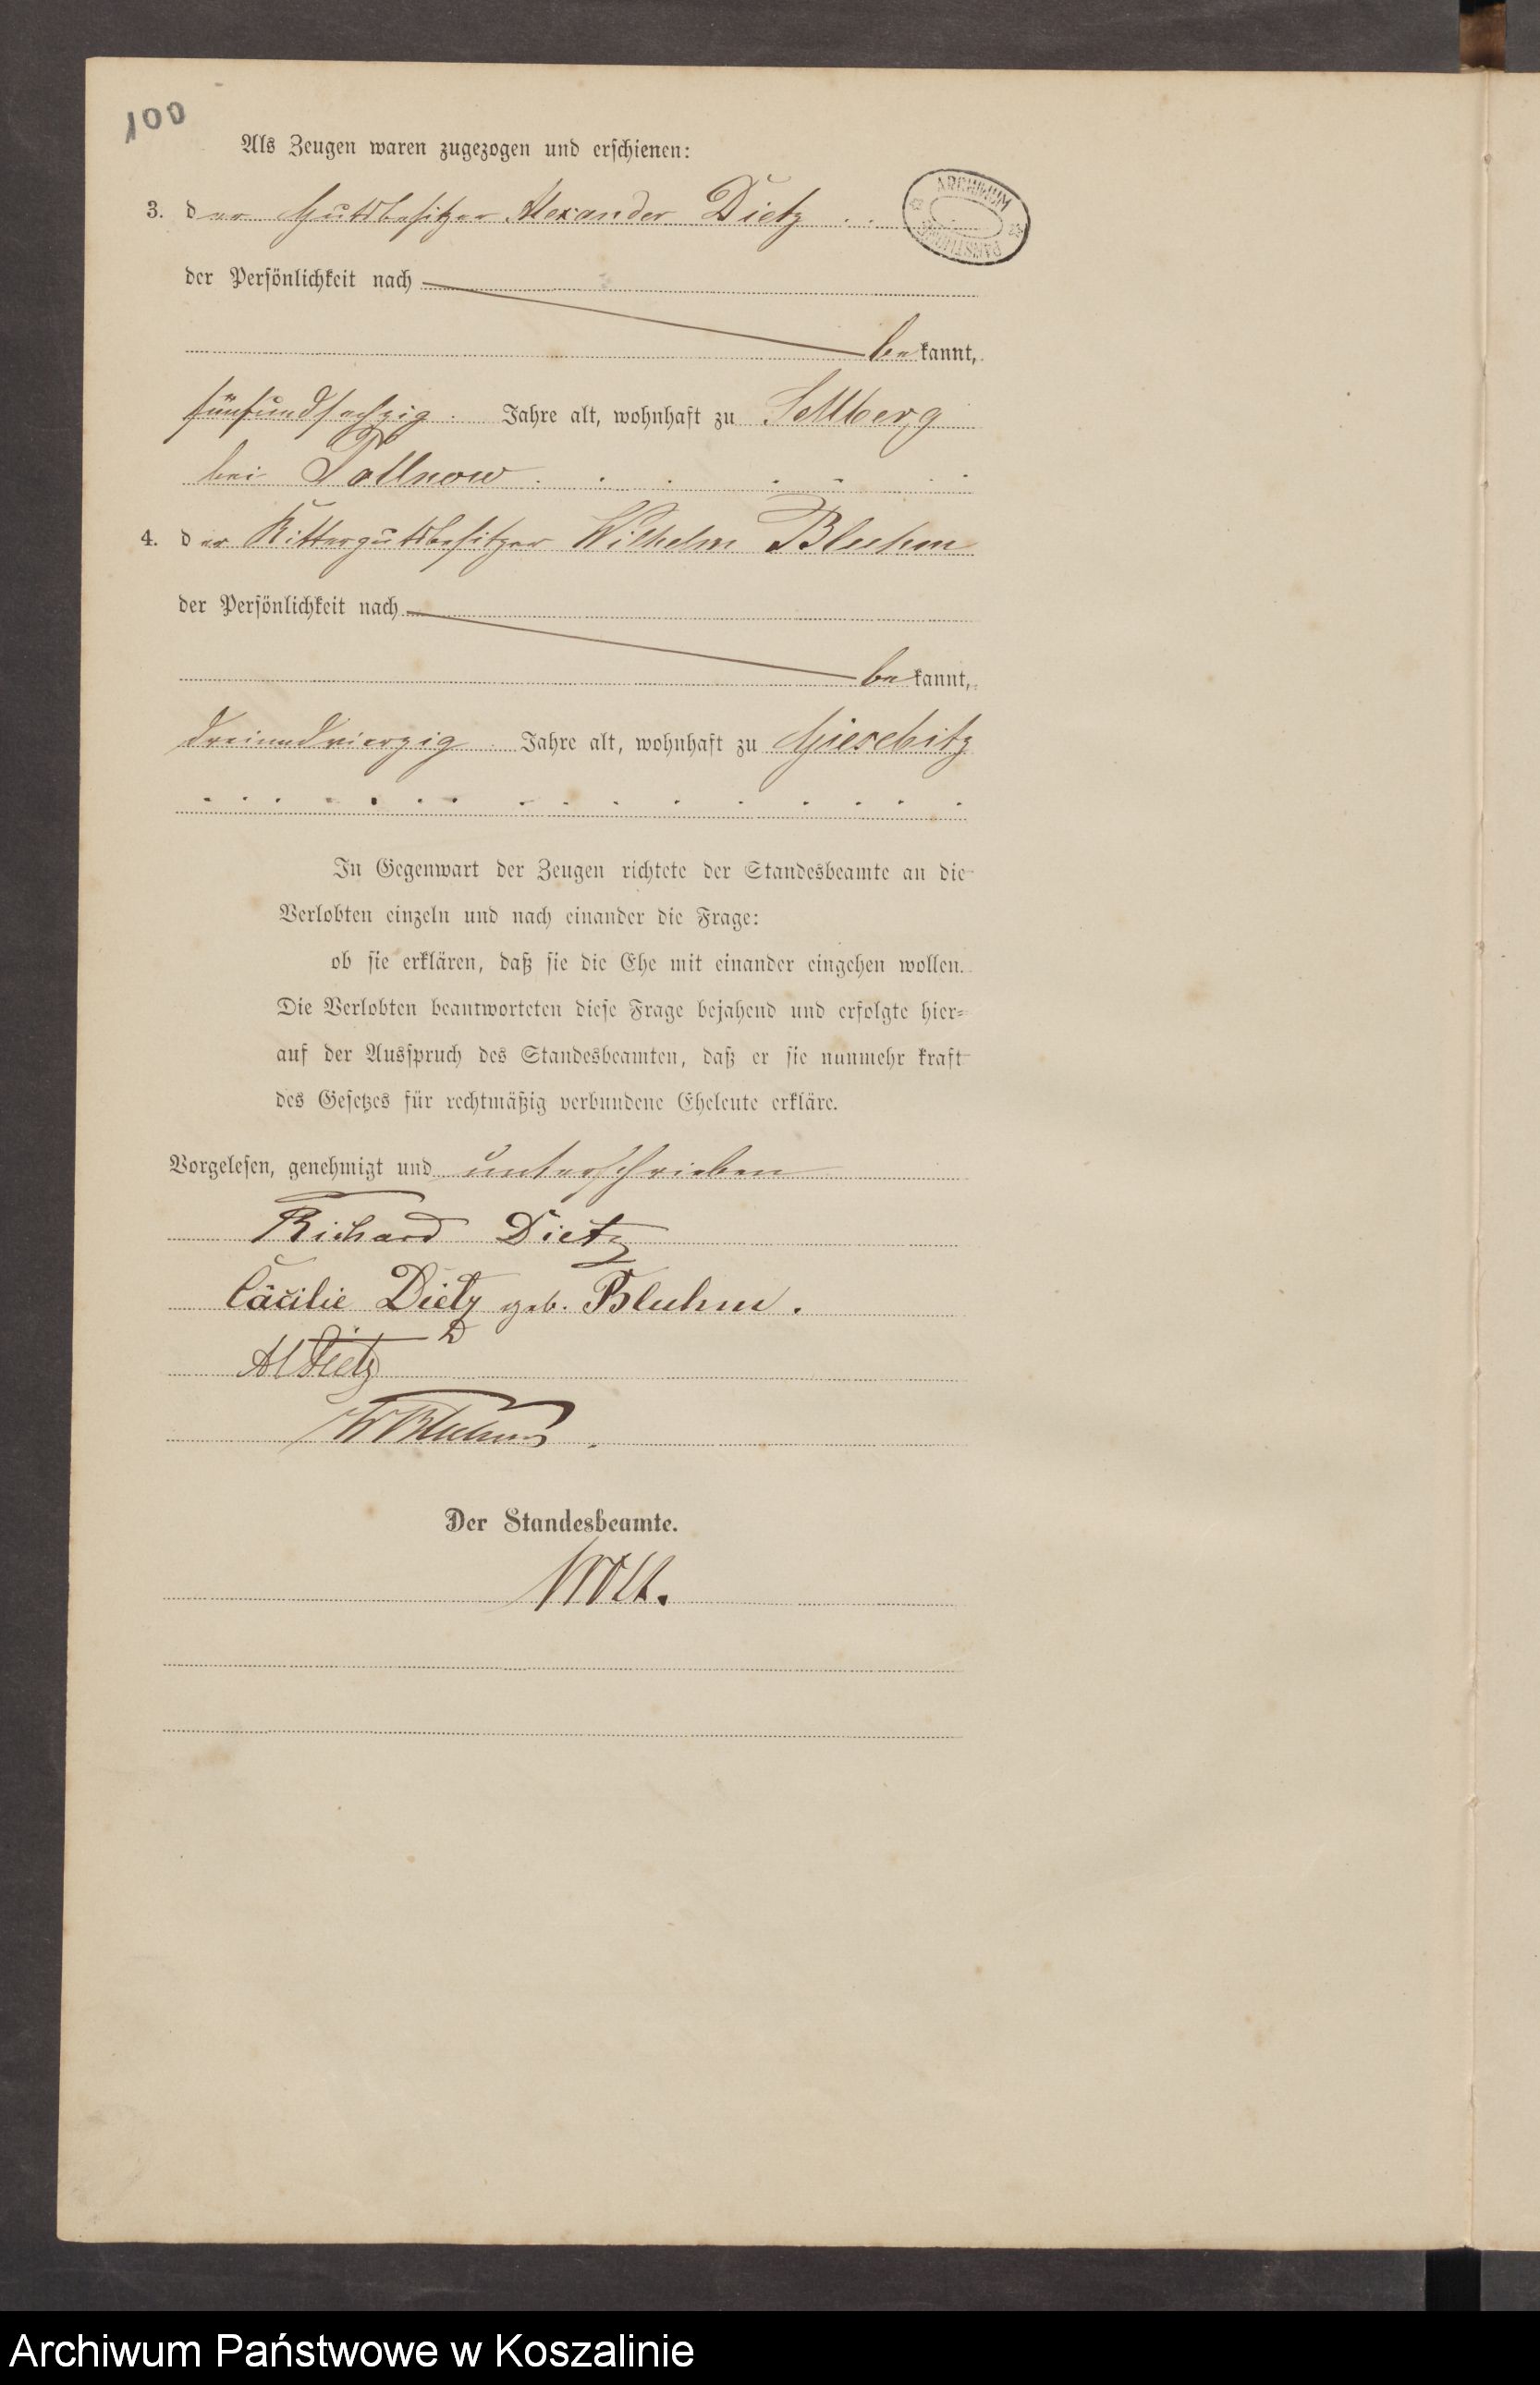 100
Als Zeugen waren zugezogen und erschienen:
3. der Gutsbesitzer Alexander Dietz
ARCHIWUM
PAŃSTWOWE
der Persönlichkeit nach
bekannt,
fünfundsechzig Jahre alt, wohnhaft zu Sellberg
bei Pollnow
4. der Rittergutsbesitzer Wilhelm Bluhm
der Persönlichkeit nach
bekannt,
dreiundvierzig Jahre alt, wohnhaft zu Giesebitz
In Gegenwart der Zeugen richtete der Standesbeamte an die
Verlobten einzeln und nach einander die Frage:
ob sie erklären, daß sie die Ehe mit einander eingehen wollen.
Die Verlobten beantworteten diese Frage bejahend und erfolgte hier-
auf der Ausspruch des Standesbeamten, daß er sie nunmehr kraft
des Gesetzes für rechtmäßig verbundene Eheleute erkläre.
Vorgelesen, genehmigt und unterschrieben
Richard Dietz
Cäcilie Dietz geb. Bluhm.
Al Dietz
W Bluhm
Der Standesbeamte.
Archiwum Państwowe w Koszalinie